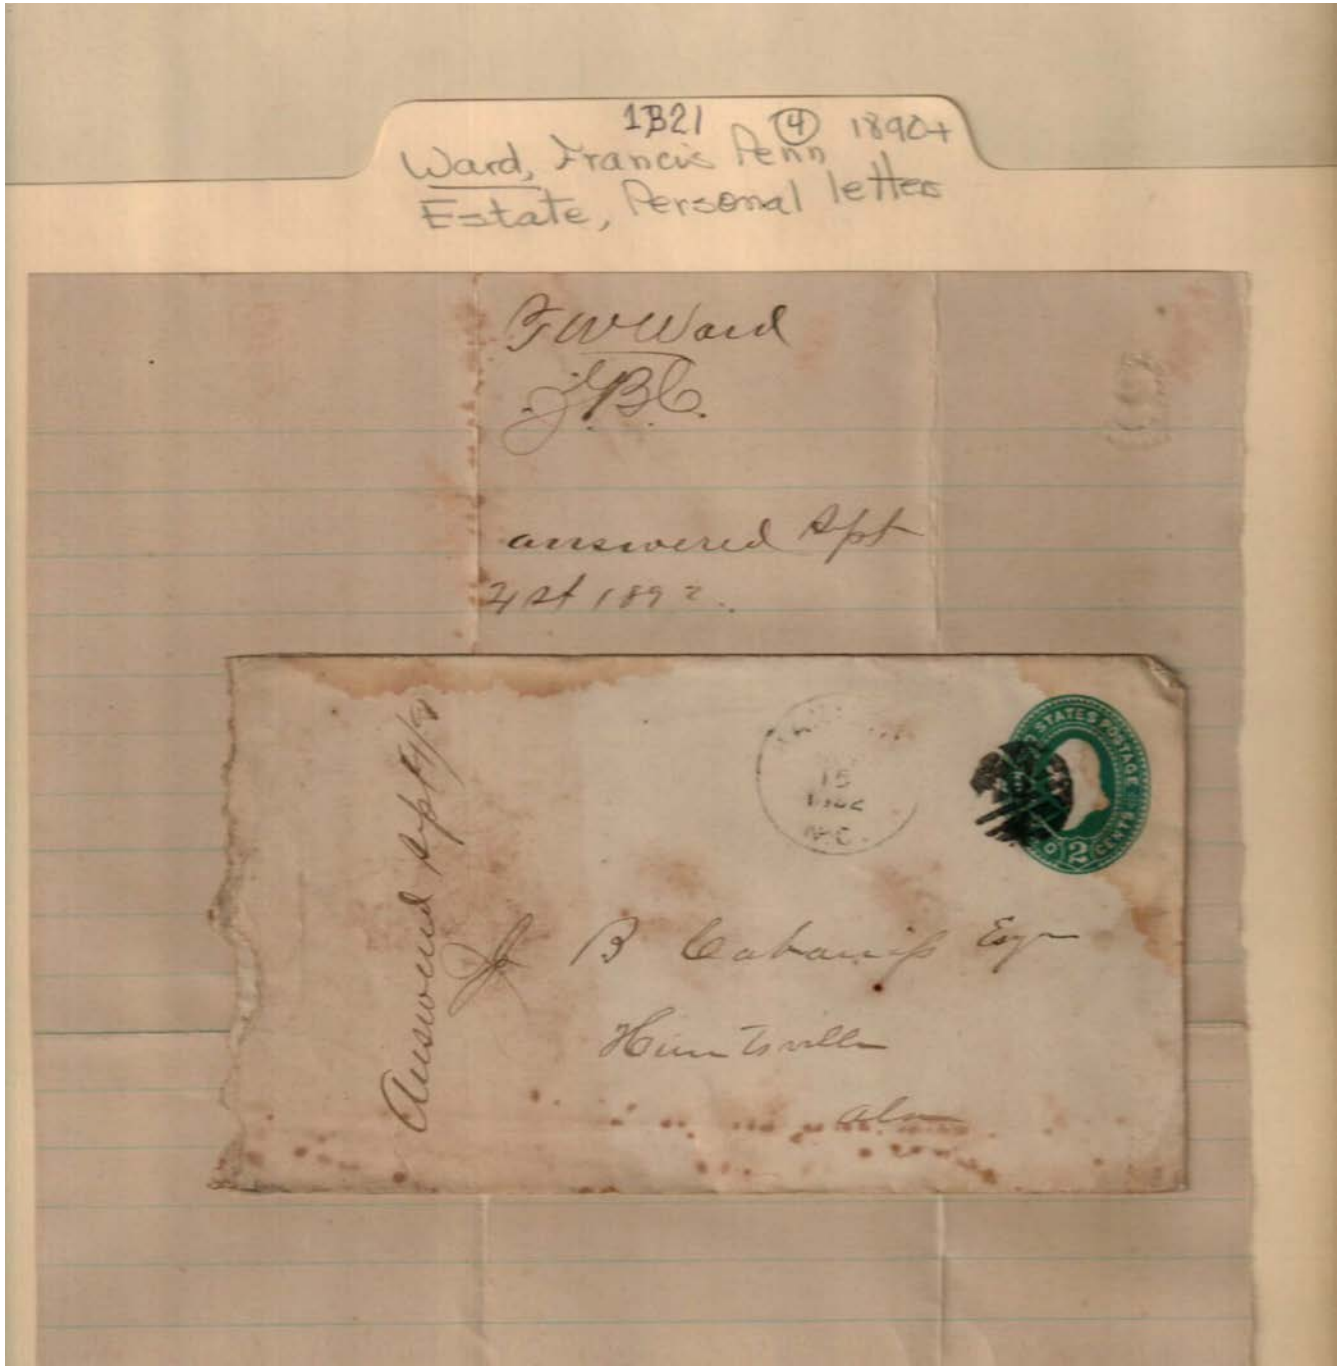 1B21 4 1890+
Ward, Francis Penn
Estate, Personal letters
F W Ward
J.B.C.
answered Spt
21st 1892.
Answered Spt
15
N.C.
STATES POSTAGE
2 CENTS
B Cabaniss Esqr
Huntsville
Ala